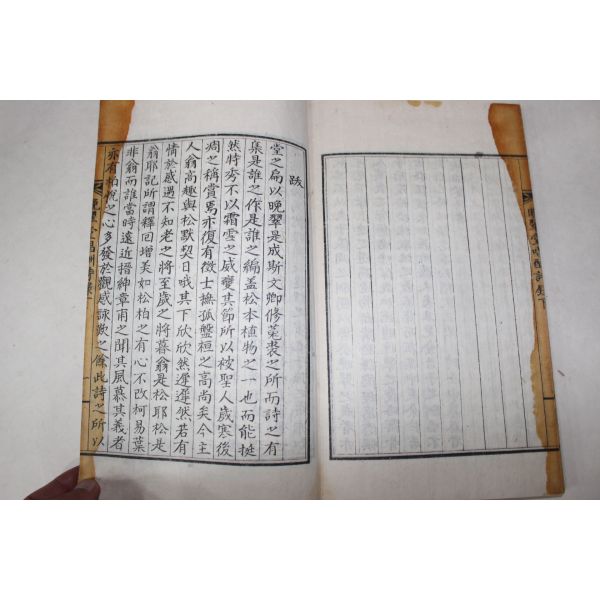 跋
堂之扁以晩翠是成斯文卿修菟裘之所而詩之有
集是誰之作是誰之編盖松本植物之一也而能挺
然特秀不以霜雪之威變其節所以被聖人歲寒後
凋之稱賞焉亦復有徵士撫孤盤桓之高尚矣今主
人翁高趣與松默契日哦其下欣欣然遲遲然若有
情於感遇不知老之將至歲之將暮翁是松耶松是
翁耶記所謂釋回增美如松柏之有心不改柯易葉
非翁而誰當時遠近搢紳章甫之聞其風慕其義者
亦有拓悅之心多發於觀感詠歎之餘此詩之所以